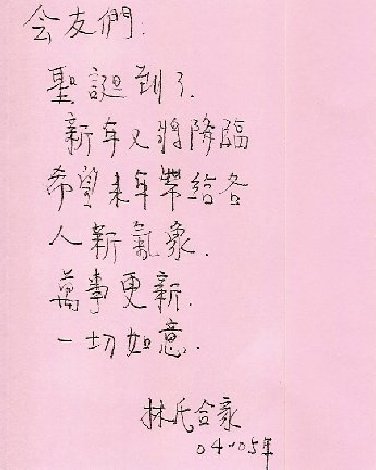 会友們:
聖誕到了.
新年又將降臨
希望来年帶給各
人新氣象.
萬事更新.
一切如意.
林氏合家
04-05年